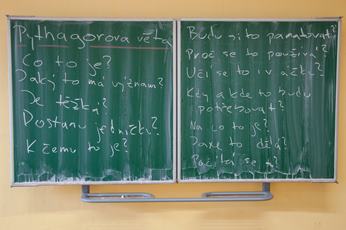 Pythagorova věta
Co to je?
Jaký to má význam?
Je těžká?
Dostanu jedničku?
K čemu to je?
Budu si to pamatovat?
Proč se to používá?
Učí se to i v
Kdy a kde to budu
potřebovat?
Na co to je?
to dělá?
se